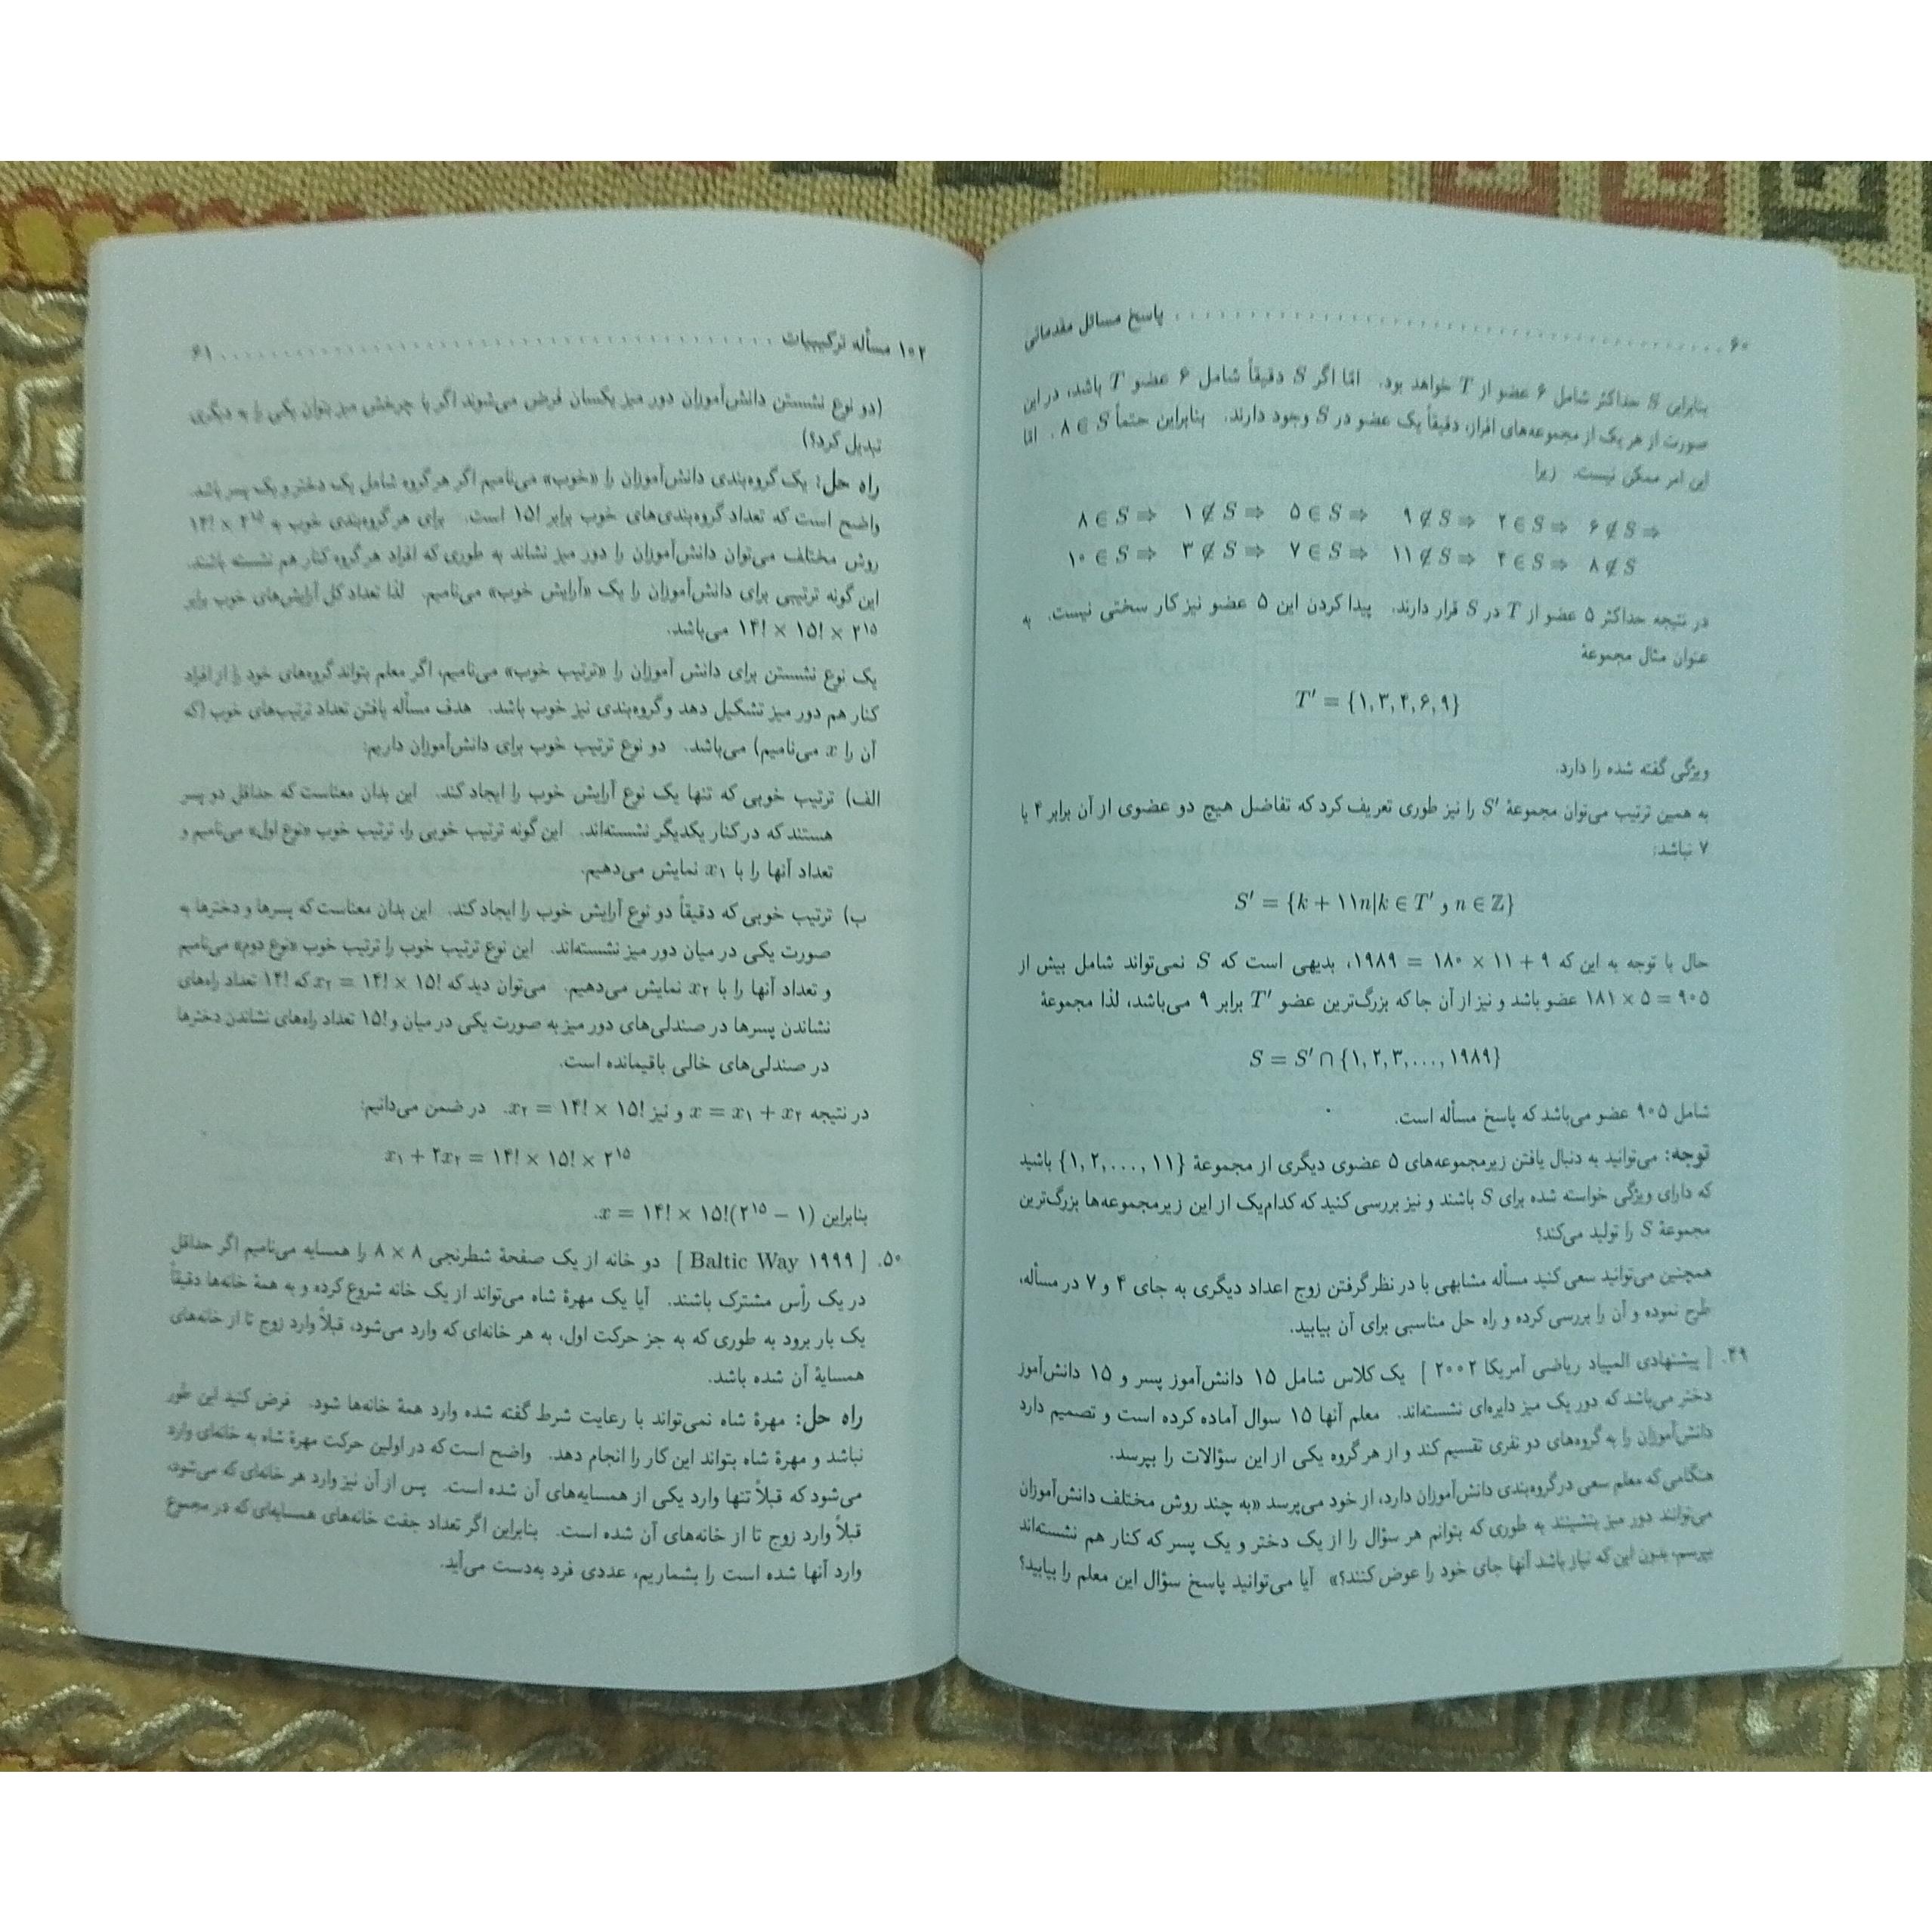 ۶۰ ........ پاسخ مسائل مقدماتی
بنابراین S حداکثر شامل ۶ عضو از T خواهد بود. امّا اگر S دقیقاً شامل ۶ عضو T باشد، در این
صورت از هر یک از مجموعه‌های افراز، دقیقاً یک عضو در S وجود دارند. بنابراین حتماً ۸ ∈ S. امّا
این امر ممکن نیست. زیرا
۸ ∈ S ⇒ ۱ ∉ S ⇒ ۵ ∈ S ⇒ ۹ ∉ S ⇒ ۲ ∈ S ⇒ ۶ ∉ S ⇒
۱۰ ∈ S ⇒ ۳ ∉ S ⇒ ۷ ∈ S ⇒ ۱۱ ∉ S ⇒ ۴ ∈ S ⇒ ۸ ∉ S
در نتیجه حداکثر ۵ عضو از T در S قرار دارند. پیدا کردن این ۵ عضو نیز کار سختی نیست. به
عنوان مثال مجموعهٔ
T′ = {۱,۳,۴,۶,۹}
ویژگی گفته شده را دارد.
به همین ترتیب می‌توان مجموعهٔ S′ را نیز طوری تعریف کرد که تفاضل هیچ دو عضوی از آن برابر ۴ یا
۷ نباشد:
S′ = {k + ۱۱n|k ∈ T′ و n ∈ ℤ}
حال با توجه به این که ۹ + ۱۱ × ۱۸۰ = ۱۹۸۹، بدیهی است که S نمی‌تواند شامل بیش از
۹۰۵ = ۵ × ۱۸۱ عضو باشد و نیز از آن جا که بزرگ‌ترین عضو T′ برابر ۹ می‌باشد، لذا مجموعهٔ
S = S′ ∩ {۱,۲,۳,...,۱۹۸۹}
شامل ۹۰۵ عضو می‌باشد که پاسخ مسأله است.
توجه: می‌توانید به دنبال یافتن زیرمجموعه‌های ۵ عضوی دیگری از مجموعهٔ {۱,۲,...,۱۱} باشید
که دارای ویژگی خواسته شده برای S باشند و نیز بررسی کنید که کدام‌یک از این زیرمجموعه‌ها بزرگ‌ترین
مجموعهٔ S را تولید می‌کند؟
همچنین می‌توانید سعی کنید مسأله مشابهی با در نظر گرفتن زوج اعداد دیگری به جای ۴ و ۷ در مسأله،
طرح نموده و آن را بررسی کرده و راه حل مناسبی برای آن بیابید.
۴۹. [ پیشنهادی المپیاد ریاضی آمریکا ۲۰۰۲ ] یک کلاس شامل ۱۵ دانش‌آموز پسر و ۱۵ دانش‌آموز
دختر می‌باشد که دور یک میز دایره‌ای نشسته‌اند. معلم آنها ۱۵ سوال آماده کرده است و تصمیم دارد
دانش‌آموزان را به گروه‌های دو نفری تقسیم کند و از هر گروه یکی از این سؤالات را بپرسد.
هنگامی که معلم سعی در گروه‌بندی دانش‌آموزان دارد، از خود می‌پرسد «به چند روش مختلف دانش‌آموزان
می‌توانند دور میز بنشینند به طوری که بتوانم هر سؤال را از یک دختر و یک پسر که کنار هم نشسته‌اند
بپرسم، بدون این که نیاز باشد آنها جای خود را عوض کنند؟» آیا می‌توانید پاسخ سؤال این معلم را بیابید؟
۱۰۲ مسأله ترکیبیات ........ ۶۱
(دو نوع نشستن دانش‌آموزان دور میز یکسان فرض می‌شوند اگر با چرخش میز بتوان یکی را به دیگری
تبدیل کرد؟)
راه حل: یک گروه‌بندی دانش‌آموزان را «خوب» می‌نامیم اگر هر گروه شامل یک دختر و یک پسر باشد.
واضح است که تعداد گروه‌بندی‌های خوب برابر ۱۵! است. برای هر گروه‌بندی خوب به ۲^۱۵ × ۱۴!
روش مختلف می‌توان دانش‌آموزان را دور میز نشاند به طوری که افراد هر گروه کنار هم نشسته باشند.
این گونه ترتیبی برای دانش‌آموزان را یک «آرایش خوب» می‌نامیم. لذا تعداد کل آرایش‌های خوب برابر
۱۴! × ۱۵! × ۲^۱۵ می‌باشد.
یک نوع نشستن برای دانش آموزان را «ترتیب خوب» می‌نامیم، اگر معلم بتواند گروه‌های خود را از افراد
کنار هم دور میز تشکیل دهد و گروه‌بندی نیز خوب باشد. هدف مسأله یافتن تعداد ترتیب‌های خوب (که
آن را x می‌نامیم) می‌باشد. دو نوع ترتیب خوب برای دانش‌آموزان داریم:
الف) ترتیب خوبی که تنها یک نوع آرایش خوب را ایجاد کند. این بدان معناست که حداقل دو پسر
هستند که در کنار یکدیگر نشسته‌اند. این گونه ترتیب خوبی را، ترتیب خوب «نوع اول» می‌نامیم و
تعداد آنها را با x₁ نمایش می‌دهیم.
ب) ترتیب خوبی که دقیقاً دو نوع آرایش خوب را ایجاد کند. این بدان معناست که پسرها و دخترها به
صورت یکی در میان دور میز نشسته‌اند. این نوع ترتیب خوب را ترتیب خوب «نوع دوم» می‌نامیم
و تعداد آنها را با x₂ نمایش می‌دهیم. می‌توان دید که x₂ = ۱۴! × ۱۵! که ۱۴! تعداد راه‌های
نشاندن پسرها در صندلی‌های دور میز به صورت یکی در میان و ۱۵! تعداد راه‌های نشاندن دخترها
در صندلی‌های خالی باقیمانده است.
در نتیجه x = x₁ + x₂ و نیز x₂ = ۱۴! × ۱۵!. در ضمن می‌دانیم:
x₁ + ۲x₂ = ۱۴! × ۱۵! × ۲^۱۵
بنابراین x = ۱۴! × ۱۵!(۲^۱۵ − ۱).
۵۰. [ Baltic Way ۱۹۹۹ ] دو خانه از یک صفحهٔ شطرنجی ۸ × ۸ را همسایه می‌نامیم اگر حداقل
در یک رأس مشترک باشند. آیا یک مهرهٔ شاه می‌تواند از یک خانه شروع کرده و به همهٔ خانه‌ها دقیقاً
یک بار برود به طوری که به جز حرکت اول، به هر خانه‌ای که وارد می‌شود، قبلاً وارد زوج تا از خانه‌های
همسایهٔ آن شده باشد.
راه حل: مهرهٔ شاه نمی‌تواند با رعایت شرط گفته شده وارد همهٔ خانه‌ها شود. فرض کنید این طور
نباشد و مهرهٔ شاه بتواند این کار را انجام دهد. واضح است که در اولین حرکت مهرهٔ شاه به خانه‌ای وارد
می‌شود که قبلاً تنها وارد یکی از همسایه‌های آن شده است. پس از آن نیز وارد هر خانه‌ای که می‌شود،
قبلاً وارد زوج تا از خانه‌های آن شده است. بنابراین اگر تعداد جفت خانه‌های همسایه‌ای که در مجموع
وارد آنها شده است را بشماریم، عددی فرد به‌دست می‌آید.